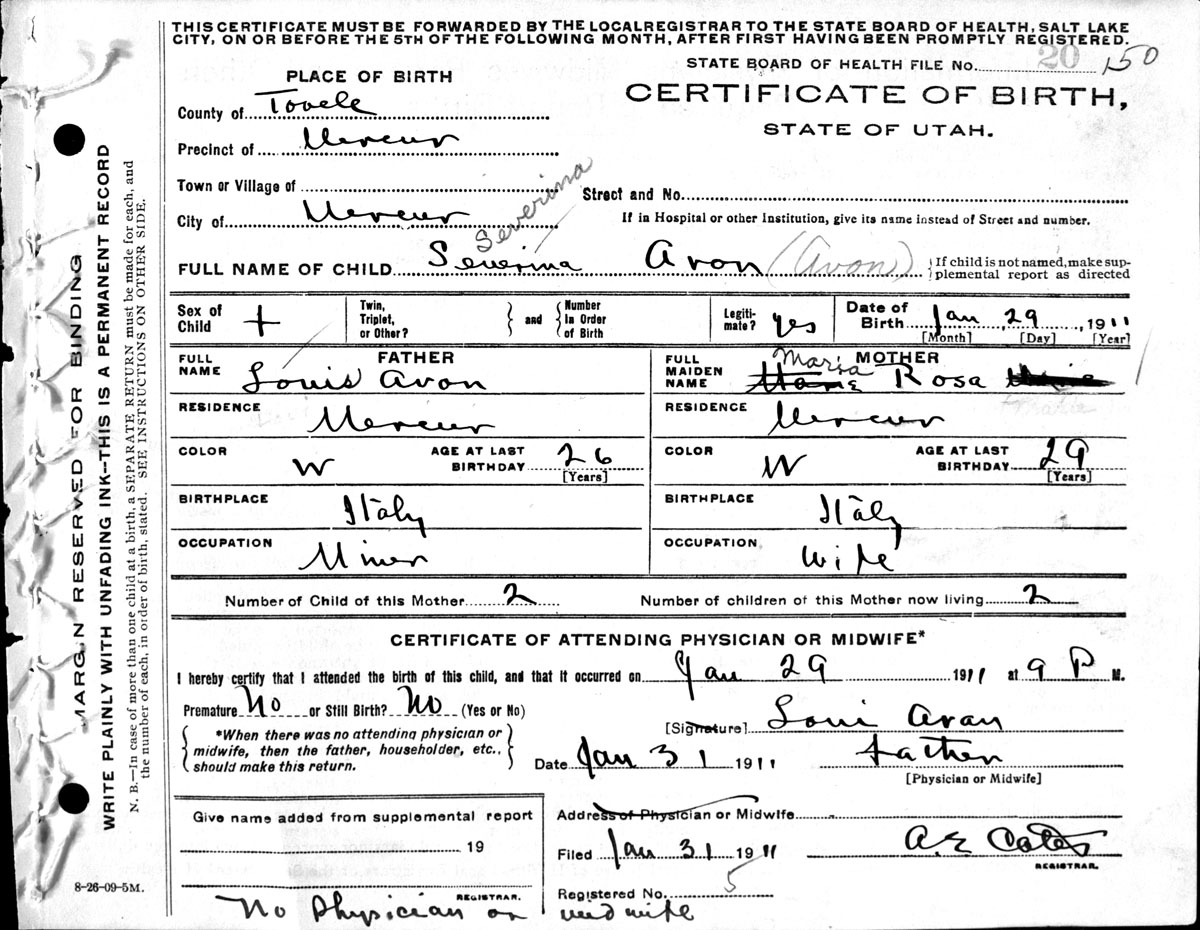 THIS CERTIFICATE MUST BE FORWARDED BY THE LOCALREGISTRAR TO THE STATE BOARD OF HEALTH, SALT LAKE
CITY, ON OR BEFORE THE 5TH OF THE FOLLOWING MONTH, AFTER FIRST HAVING BEEN PROMPTLY REGISTERED.
STATE BOARD OF HEALTH FILE NO. 20 150
PLACE OF BIRTH
CERTIFICATE OF BIRTH,
STATE OF UTAH.
County of Tooele
Precinct of Mercur
Town or Village of
Street and No.
City of Mercur
If in Hospital or other Institution, give its name instead of Street and number.
Severina
FULL NAME OF CHILD Severina Avon (Avon)
If child is not named, make sup-
plemental report as directed
Sex of Child +
Twin, Triplet, or Other?
and
Number In Order of Birth
Legiti-mate? yes
Date of Birth Jan, 29, 1911
[Month] [Day] [Year]
FATHER
FULL NAME Louis Avon
RESIDENCE Mercur
COLOR W
AGE AT LAST BIRTHDAY 26
[Years]
BIRTHPLACE Italy
OCCUPATION Miner
MOTHER
FULL MAIDEN NAME Maria Rosa
RESIDENCE Mercur
COLOR W
AGE AT LAST BIRTHDAY 29
[Years]
BIRTHPLACE Italy
OCCUPATION Wife
Number of Child of this Mother 2
Number of children of this Mother now living 2
CERTIFICATE OF ATTENDING PHYSICIAN OR MIDWIFE*
I hereby certify that I attended the birth of this child, and that it occurred on Jan 29 1911 at 9 P M.
Premature No or Still Birth? No (Yes or No)
[Signature] Loui Avan
*When there was no attending physician or
midwife, then the father, householder, etc.,
should make this return.
Date Jan 31 1911
father
[Physician or Midwife]
Give name added from supplemental report
19
REGISTRAR.
Address of Physician or Midwife
Filed Jan 31 1911
A. E Cates
REGISTRAR.
Registered No. 5
8-26-09-5M.
No Physician or midwife
MARGIN RESERVED FOR BINDING
WRITE PLAINLY WITH UNFADING INK--THIS IS A PERMANENT RECORD
N. B.—In case of more than one child at a birth, a SEPARATE RETURN must be made for each, and
the number of each, in order of birth, stated. SEE INSTRUCTIONS ON OTHER SIDE.